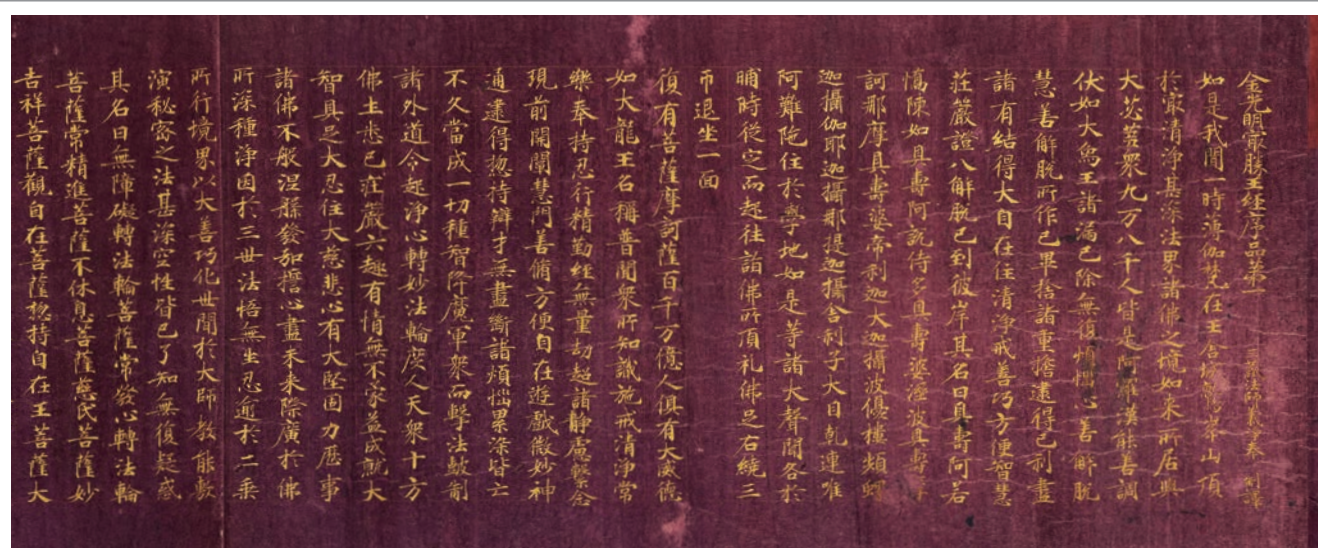 金光明最勝王經序品第一 三藏法師義淨奉 制譯
如是我聞一時薄伽梵在王舍城鷲峯山頂
於最清淨甚深法界諸佛之境如來所居與
大苾蒭衆九万八千人皆是阿羅漢能善調
伏如大象王諸漏已除無復煩惱心善解脫
慧善解脫所作已畢捨諸重擔逮得己利盡
諸有結得大自在住清淨戒善巧方便智慧
莊嚴證八解脫已到彼岸其名曰具壽阿若
憍陳如具壽阿說侍多具壽婆濕波具壽摩
訶那摩具壽婆帝利迦大迦攝波優樓頻螺
迦攝伽耶迦攝那提迦攝舍利子大目乾連唯
阿難陁住於學地如是等諸大聲聞各於
晡時從定而起往詣佛所頂礼佛足右繞三
帀退坐一面
復有菩薩摩訶薩百千万億人俱有大威德
如大龍王名稱普聞衆所知識施戒清淨常
樂奉持忍行精勤經無量劫超諸靜慮繫念
現前開闡慧門善脩方便自在遊戲微妙神
通逮得惣持辯才無盡斷諸煩惱累染皆亡
不久當成一切種智降魔軍衆而擊法鼓制
諸外道令起淨心轉妙法輪度人天衆十方
佛土悉已莊嚴六趣有情無不蒙益成就大
智具足大忍住大慈悲心有大堅固力歷事
諸佛不般涅槃發弘誓心盡未來際廣於佛
所深種淨因於三世法悟無生忍逾於二乘
所行境界以大善巧化世間於大師教能敷
演秘密之法甚深空性皆已了知無復疑惑
其名曰無障礙轉法輪菩薩常發心轉法輪
菩薩常精進菩薩不休息菩薩慈氏菩薩妙
吉祥菩薩觀自在菩薩惣持自在王菩薩大